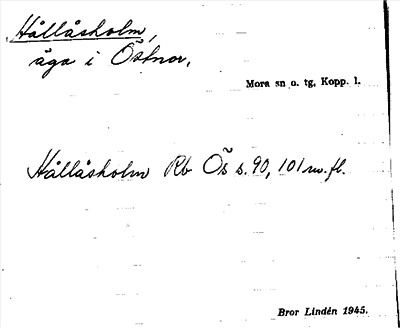 Hållåsholm,
äga i Östnor.
Mora sn o. tg, Kopp. l.
Hållåsholm Rb Ös s. 90, 101 m. fl.
Bror Lindén 1945.